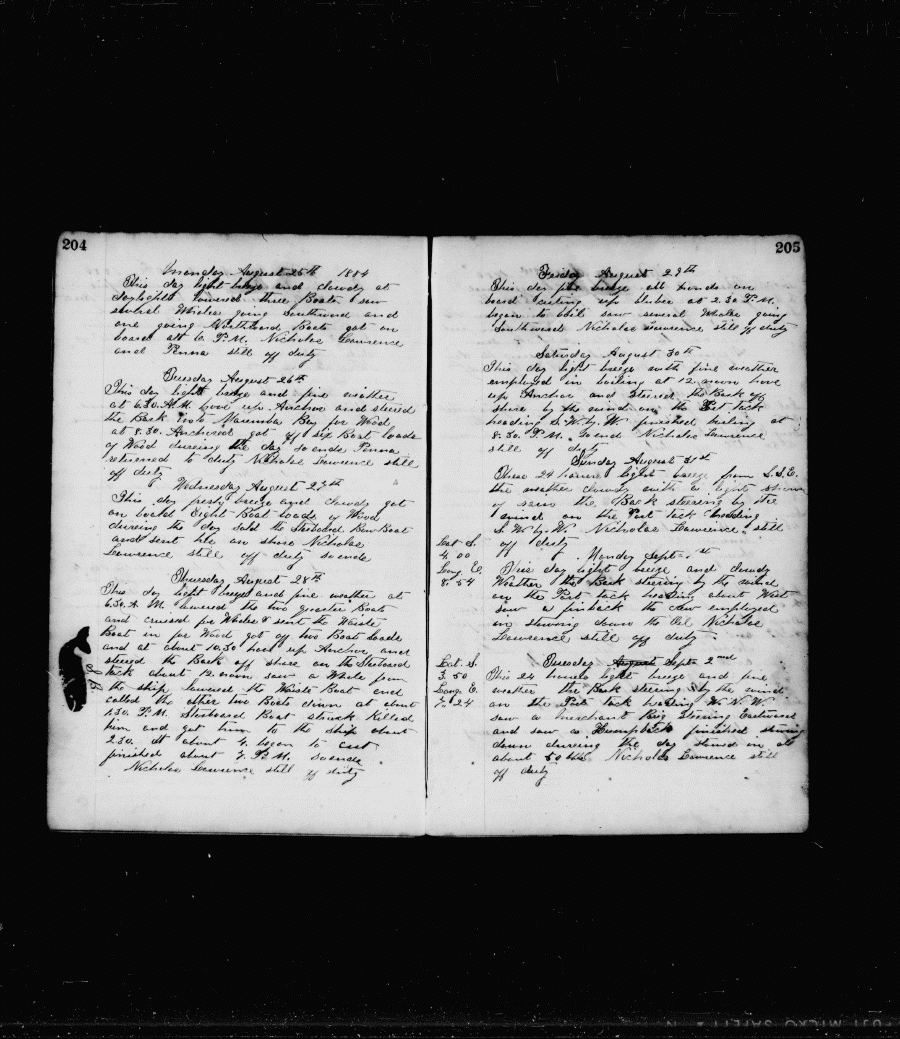 204
Monday August 25th 1884
This day light breeze and cloudy at
daylight lowered three Boats saw
several Whales going Southward and
one going Northward Boats got on
board at 6 P.M. Nicholas Lawrence
and Penna still off duty
Tuesday August 26th
This day light breeze and fine weather
at 6.30 A.M. hove up Anchor and steered
the Bark into Marumba Bay for Wood
at 8.30 Anchored got off six Boat loads
of Wood dureing the day so ends Penna
returned to duty Nicholas Lawrence still
off duty
Wednesday August 27th
This day fresh breeze and cloudy got
on board Eight Boat loads of Wood
dureing the day sold the Starboard Bow Boat
and sent her on shore Nicholas
Lawrence still off duty so ends
Thursday August 28th
This day light breeze and fine weather at
6.30 A.M. lowered the two quarter Boats
and cruised for Whales sent the Waiste
Boat in for Wood got off two Boat loads
and at about 10.30 hove up Anchor and
steered the Bark off shore on the Starboard
tack about 12 noon saw a Whale from
the ship lowered the Waiste Boat and
called the other two Boats down at about
1.30 P.M. Starboard Boat struck killed
him and got him to the ship about
2.30. At about 4 began to cut
finished about 7 P.M. so ends
Nicholas Lawrence still off duty
205
Friday August 29th
This day fine breeze all hands on
board cutting up bluber at 2.30 P.M.
began to boil saw several Whales going
Southward Nicholas Lawrence still off duty
Saturday August 30th
This day light breeze with fine weather
employed in boiling at 12 noon hove
up Anchor and steered the Bark off
shore by the wind on the Port tack
heading S.W. by W. finished boiling at
8.30 P.M. So end Nicholas Lawrence
still off duty
Sunday August 31st
These 24 hours light breeze from S.S.E.
the weather cloudy with a light
of rain the Bark steering by the
wind on the Port tack heading
S.W. by W. Nicholas Lawrence still
off duty
Lat. S.
4.00
Long. E.
8.54
Monday Sept. 1st
This day light breeze and cloudy
Weather the Bark steering by the wind
on the Port tack heading about West
saw a finback the crew employed
in stowing down the Oil Nicholas
Lawrence still off duty
Lat. S.
3.50
Long. E.
7.24
Tuesday August Sept. 2nd
This 24 hours light breeze and fine
weather the Bark steering by the wind
on the Port tack heading W.N.W.
saw a merchant Brig steering Eastward
and saw a Humpback finished stowing
down dureing the day stowed in all
about 50 bbls Nicholas Lawrence still
off duty